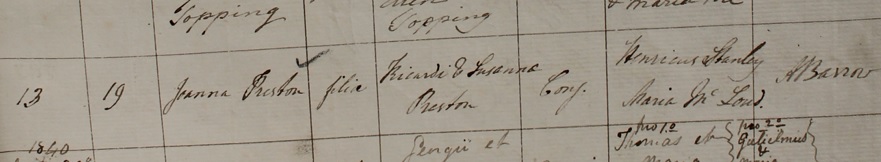 Topping
Topping
13 19 Joanna Preston filia Ricardi & Susanna Preston Conj. Henricus Stanley Maria Mc Loud. A Barrow
1840
Georgii et
pro 1o Thomas et
pro 2o Gulielmus &
Maria